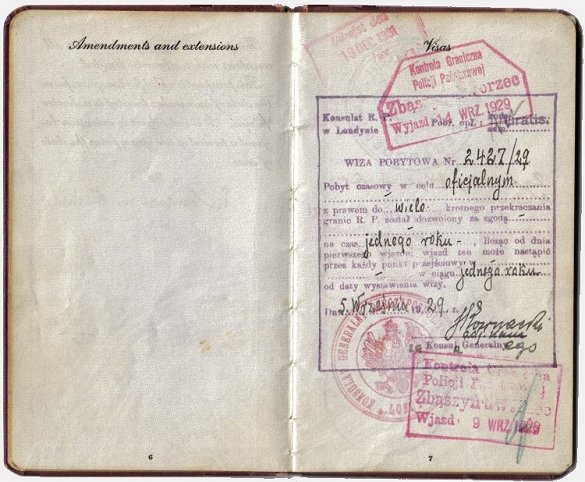 Amendments and extensions
6
Visas
19 DEC
Kontrola Graniczna
Policji Państwowej
Wyjazd 14 WRZ. 1929
Konsulat R. P.
w Londynie
Gratis.
WIZA POBYTOWA Nr. 2427/29
Pobyt czasowy w celu oficjalnym
z prawem do wielo krotnego przekraczania
granic R. P. został dozwolony za zgodą
na czas jednego roku -, licząc od dnia
pierwszego wjazdu; wjazd ten może nastąpić
przez każdy punkt przejściowy w
w ciągu jednego roku
od daty wystawienia wizy.
5 Września 1929 r.
Konsul Generalny
KONSULAT GENERALNY
Kontrola
Policji
Wjazd 9 WRZ 1929
7